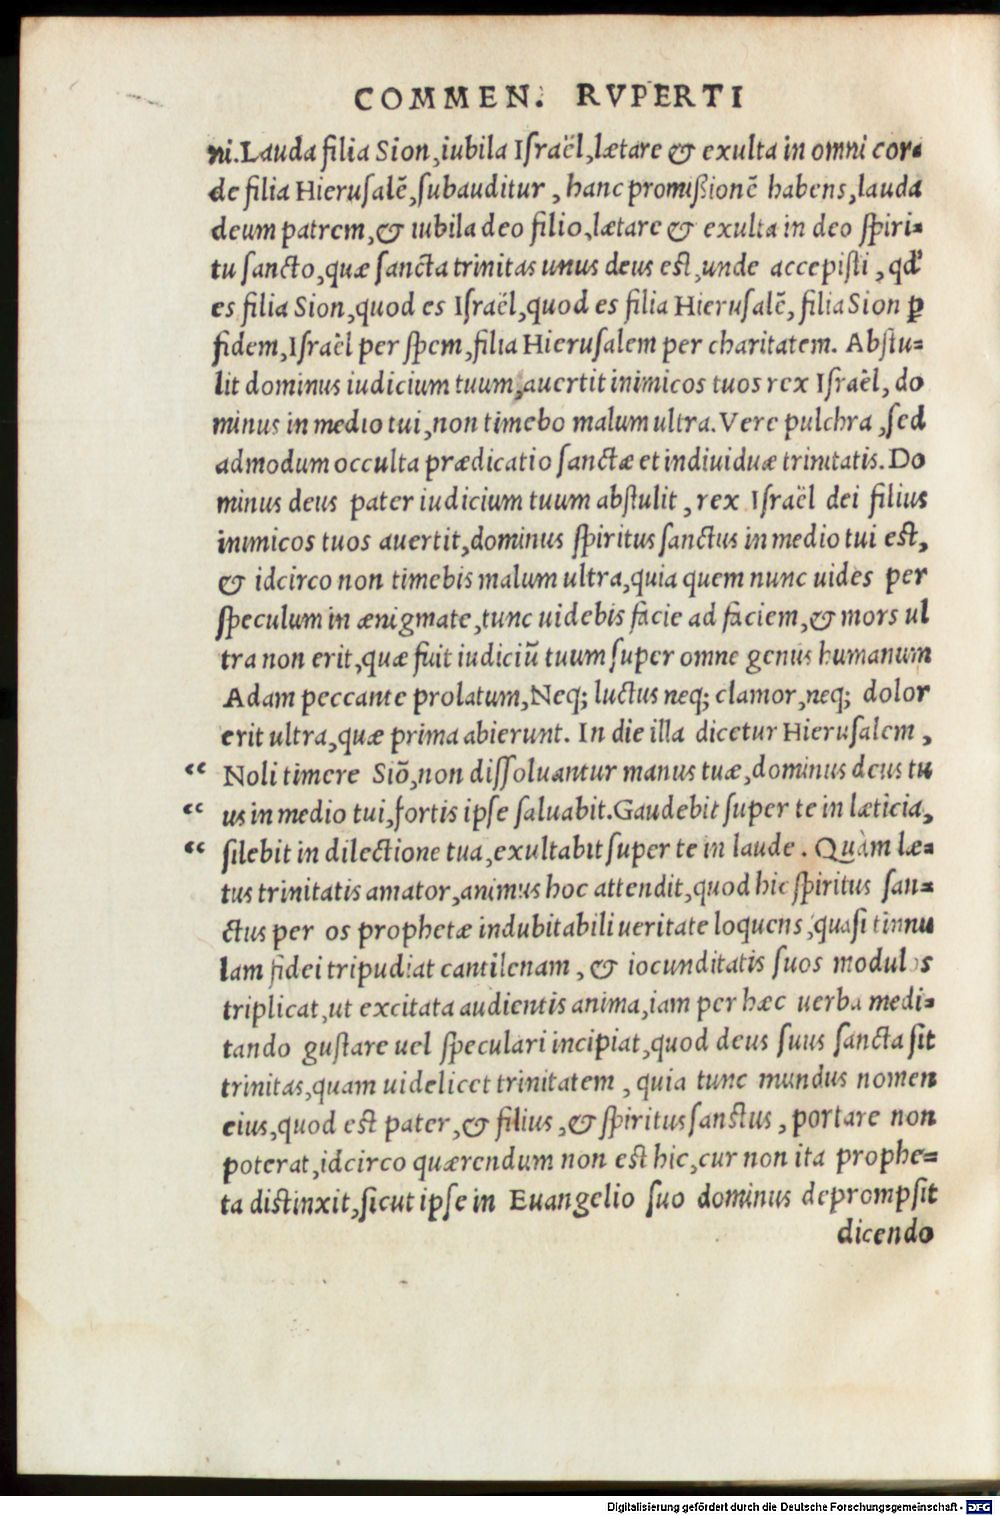 COMMEN. RVPERTI
ni. Lauda filia Sion, iubila Iſraël, lætare & exulta in omni cor-
de filia Hieruſalē, ſubauditur, hanc promiſsionē habens, lauda
deum patrem, & iubila deo filio, lætare & exulta in deo ſpiri-
tu ſancto, quæ ſancta trinitas unus deus eſt, unde accepiſti, qđ
es filia Sion, quod es Iſraël, quod es filia Hieruſalē, filia Sion ꝑ
fidem, Iſraël per ſpem, filia Hieruſalem per charitatem. Abſtu-
lit dominus iudicium tuum, auertit inimicos tuos rex Iſraël, do
minus in medio tui, non timebo malum ultra. Vere pulchra, ſed
admodum occulta prædicatio ſanctæ et indiuiduæ trinitatis. Do
minus deus pater iudicium tuum abſtulit, rex Iſraël dei filius
inimicos tuos auertit, dominus ſpiritus ſanctus in medio tui eſt,
& idcirco non timebis malum ultra, quia quem nunc uides per
ſpeculum in ænigmate, tunc uidebis facie ad faciem, & mors ul
tra non erit, quæ fuit iudiciū tuum ſuper omne genus humanum
Adam peccante prolatum, Neq; luctus neq; clamor, neq; dolor
erit ultra, quæ prima abierunt. In die illa dicetur Hieruſalem,
“ Noli timere Siō, non diſſoluantur manus tuæ, dominus deus tu
“ us in medio tui, fortis ipſe ſaluabit. Gaudebit ſuper te in læticia,
“ ſilebit in dilectione tua, exultabit ſuper te in laude. Quàm læ-
tus trinitatis amator, animus hoc attendit, quod hic ſpiritus ſan-
ctus per os prophetæ indubitabili ueritate loquens, quaſi tinnu
lam fidei tripudiat cantilenam, & iocunditatis ſuos modulos
triplicat, ut excitata audientis anima, iam per hæc uerba medi-
tando guſtare uel ſpeculari incipiat, quod deus ſuus ſancta ſit
trinitas, quam uidelicet trinitatem, quia tunc mundus nomen
eius, quod eſt pater, & filius, & ſpiritus ſanctus, portare non
poterat, idcirco quærendum non eſt hic, cur non ita prophe-
ta diſtinxit, ſicut ipſe in Euangelio ſuo dominus deprompſit
dicendo
Digitalisierung gefördert durch die Deutsche Forschungsgemeinschaft - DFG